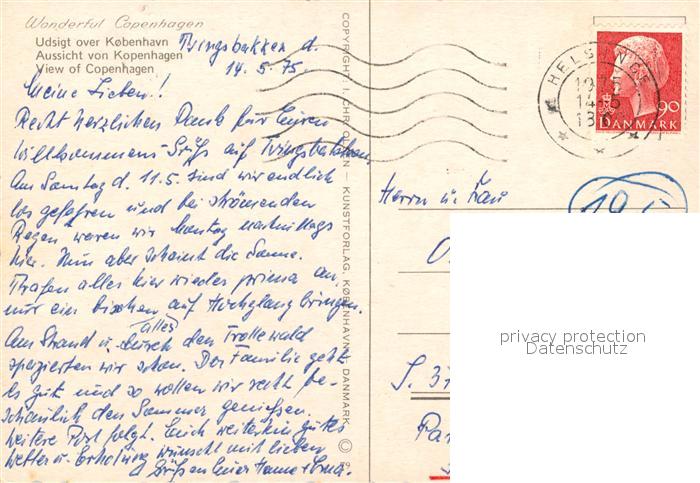 Wonderful Copenhagen
Udsigt over København
Aussicht von Kopenhagen
View of Copenhagen
Tvingsbakken d.
14.5.75.
Meine Lieben!
Recht herzlichen Dank für Euren
Willkommens-Gruß auf Tvingsbakken.
Am Samstag d. 11.5. sind wir endlich
los gefahren und bei strömenden
Regen waren wir Montag nachmittags
hier. Nun aber scheint die Sonne.
Trafen alles hier wieder prima an,
nur ein bischen auf Hochglanz bringen.
Am Strand u. durch den Trollewald
alles
spazierten wir schon. Der Familie geht
es gut und so wollen wir recht be-
schaulich den Sommer genießen.
Weitere Post folgt. Euch weiterhin gutes
Wetter u. Erholung wünscht mit lieben
Grüßen Eure Hanne + Erna.
COPYRIGHT: I. CHR. OLSEN — KUNSTFORLAG, KØBENHAVN, DANMARK ©
HELSINGØR
90
DANMARK
Herrn u. Frau
O.
S. 31
privacy protection
Datenschutz